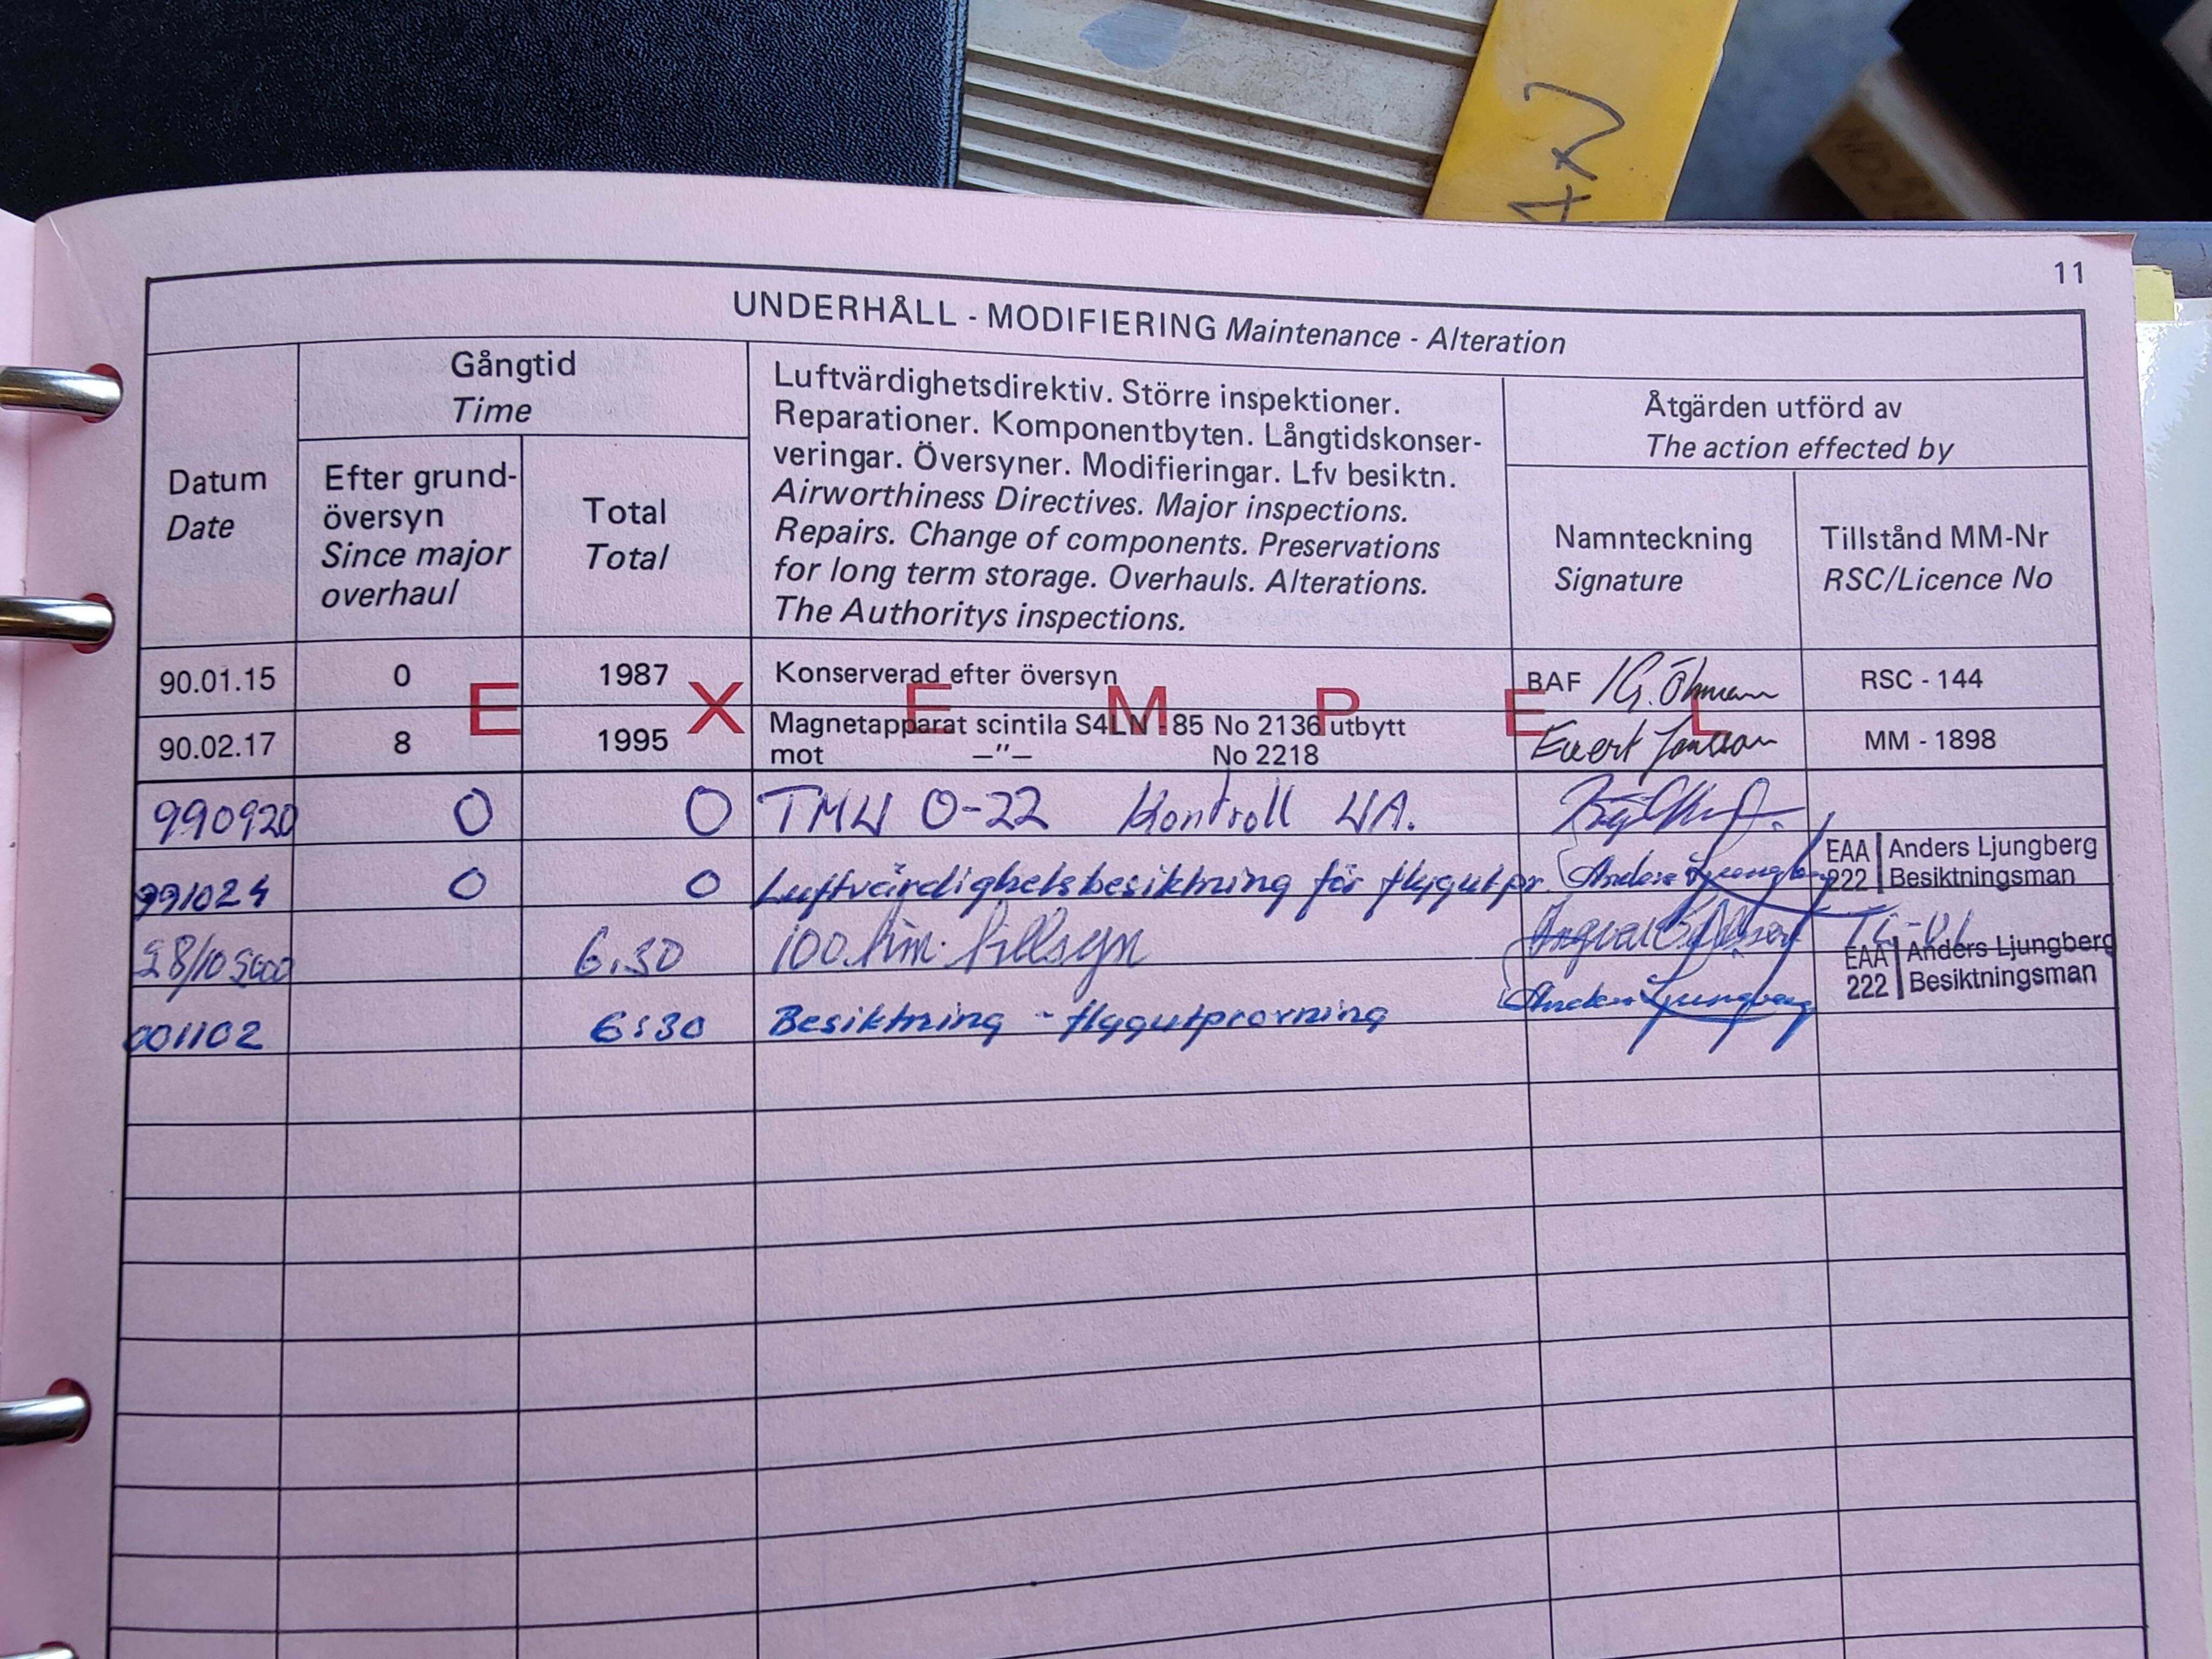 AN
11
UNDERHÅLL - MODIFIERING Maintenance - Alteration
Datum
Date
Gångtid
Time
Efter grund-
översyn
Since major
overhaul
Total
Total
Luftvärdighetsdirektiv. Större inspektioner.
Reparationer. Komponentbyten. Långtidskonser-
veringar. Översyner. Modifieringar. Lfv besiktn.
Airworthiness Directives. Major inspections.
Repairs. Change of components. Preservations
for long term storage. Overhauls. Alterations.
The Authoritys inspections.
Åtgärden utförd av
The action effected by
Namnteckning
Signature
Tillstånd MM-Nr
RSC/Licence No
90.01.15 0 1987 Konserverad efter översyn BAF K.G. Öhman RSC - 144
E X E M P E L
90.02.17 8 1995 Magnetapparat scintila S4LN - 85 No 2136 utbytt
mot —"— No 2218 Evert MM - 1898
990920 0 0 TMW 0-22 Kontroll UA.
991024 0 0 Luftvärdighetsbesiktning för flygutpr. Anders Ljungberg
EAA 222 Anders Ljungberg
Besiktningsman
28/10 2000 6.30 100 tim. tillsyn Ingvar
001102 6:30 Besiktning - flygutprovning Anders Ljungberg
EAA 222 Anders Ljungberg
Besiktningsman